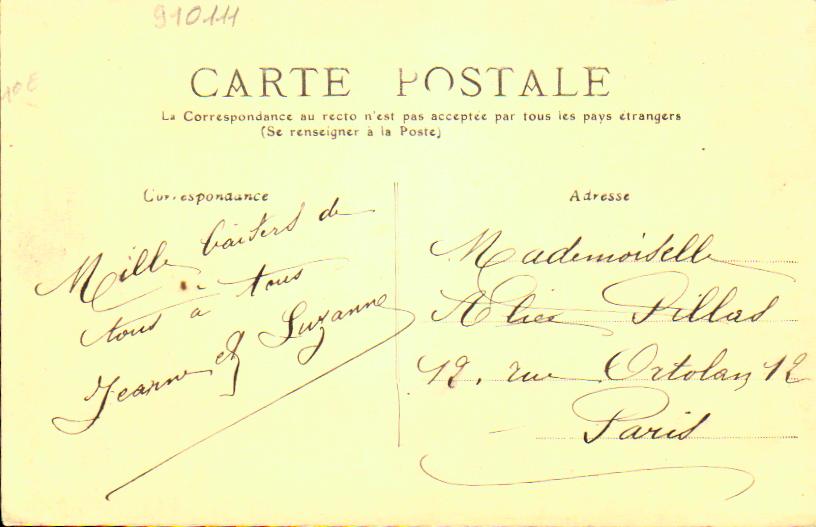 910111
10€
CARTE POSTALE
La Correspondance au recto n'est pas acceptée par tous les pays étrangers
(Se renseigner à la Poste)
Correspondance
Mille baisers de
tous à tous
Jeanne et Suzanne
Adresse
Mademoiselle
Alice Pillas
12, rue Ortolan, 12
Paris